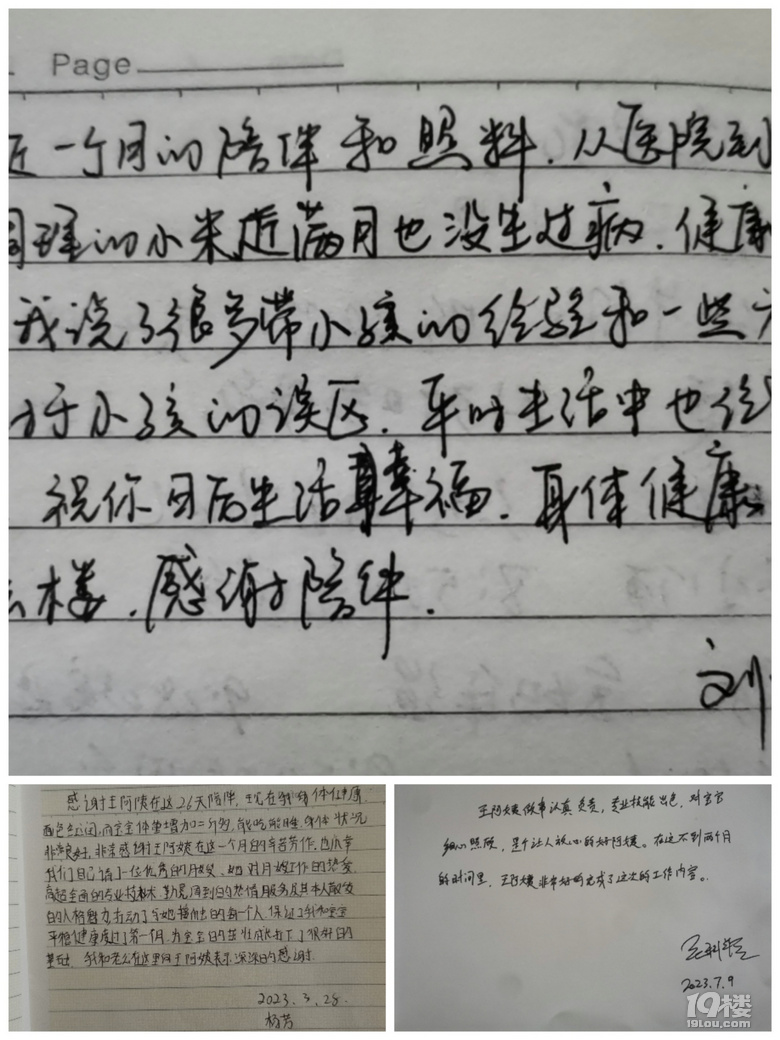 Page
近一个月的陪伴和照料.从医院到
周瑾的小米逛满月也没生过病.健康
我说了很多带小孩的经验和一些
于小孩的误区.平时生活中也给
祝你日后生活幸福.身体健康
楼.感谢陪伴.
刘
感谢王阿姨在这26天陪伴,现在我身体健康,
面色红润,而宝宝体重增加二斤多,能吃能睡,身体状况
非常良好,非常感谢王阿姨在这一个月的辛苦劳作,也庆幸
我们自己请了一位优秀的月嫂,她对月嫂工作的热爱
高超全面的专业技术,勤恳周到的热情服务及其本人散发
的人格魅力打动了与她接触的每一个人,保证了我和宝宝
平稳健康度过了第一个月,为宝宝的茁壮成长打下了很好的
基础.我和老公在这里向王阿姨表示深深的感谢.
2023.3.28.
杨芳
王阿姨做事认真负责,专业技能出色,对宝宝
细心照顾,是个让人放心的好阿姨。在这不到两个月
的时间里,王阿姨非常好的完成了这次的工作内容。
2023.7.9
19楼
19lou.com